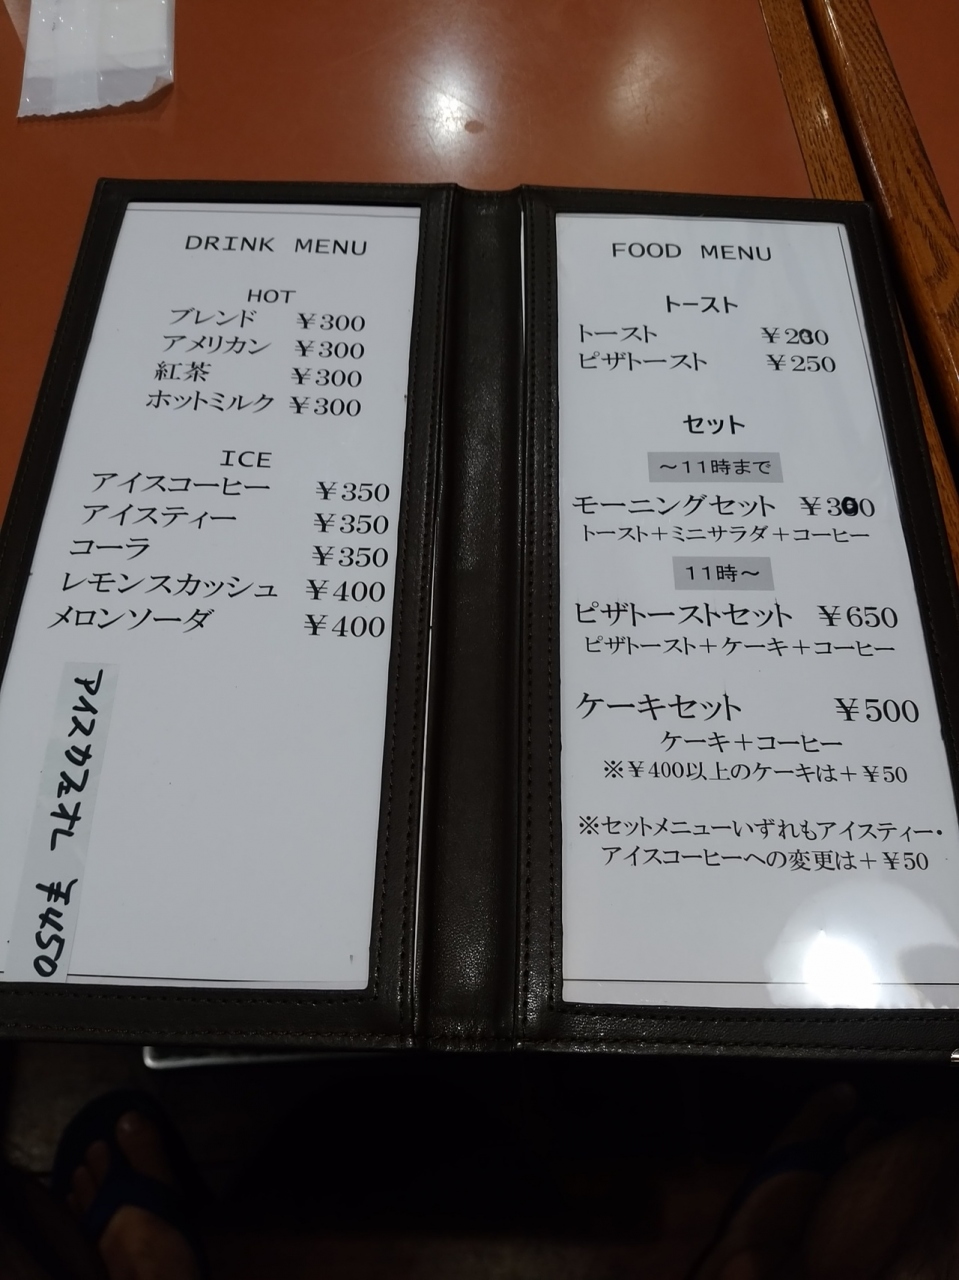 DRINK MENU
HOT
ブレンド ￥300
アメリカン ￥300
紅茶 ￥300
ホットミルク ￥300
ICE
アイスコーヒー ￥350
アイスティー ￥350
コーラ ￥350
レモンスカッシュ ￥400
メロンソーダ ￥400
アイスカフェオレ ￥450
FOOD MENU
トースト
トースト ￥200
ピザトースト ￥250
セット
～11時まで
モーニングセット ￥300
トースト＋ミニサラダ＋コーヒー
11時～
ピザトーストセット ￥650
ピザトースト＋ケーキ＋コーヒー
ケーキセット ￥500
ケーキ＋コーヒー
※￥400以上のケーキは＋￥50
※セットメニューいずれもアイスティー・
アイスコーヒーへの変更は＋￥50